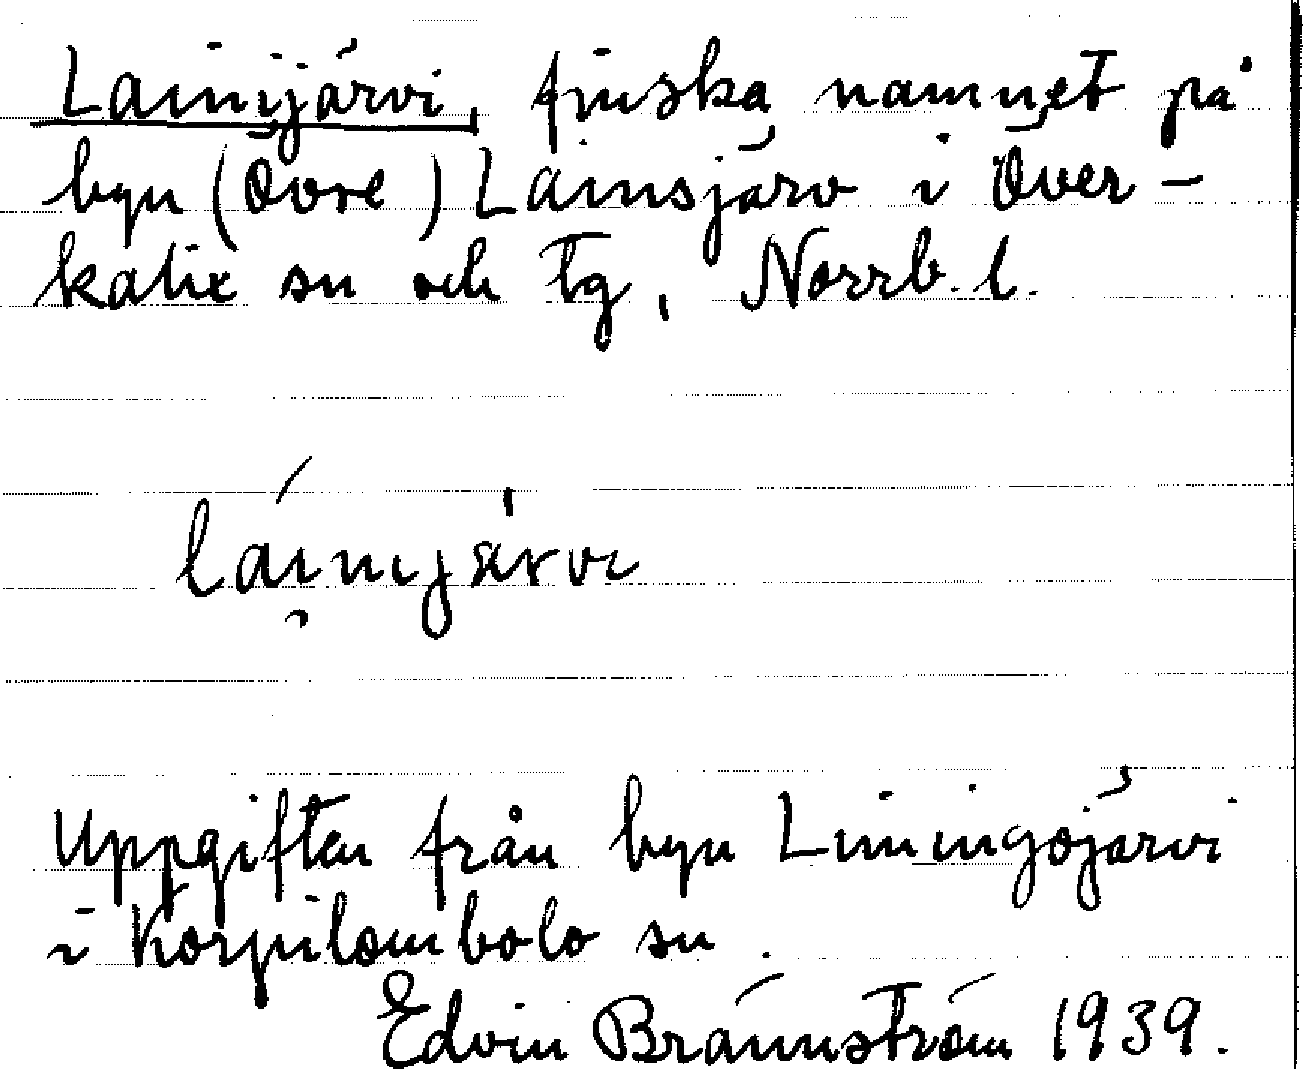 Lainijärvi, finska namnet på
byn (Övre) Lainsjärv i Över-
kalix sn och tg, Norrb. l.
Uppgiften från byn Liiningöjärvi
i Korpilombolo sn.
Edvin Brännström 1939.